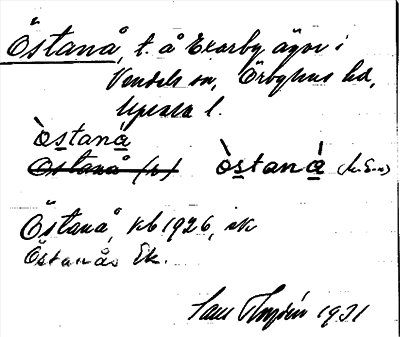 Östanå, t. å Ekarby ägor i
Vendels sn, Örbyhus hd,
Upsala l.
Òstaná
Östanå (b) Òstaná
Östanå, kb 1926, ek
Östanås Ek.
1921